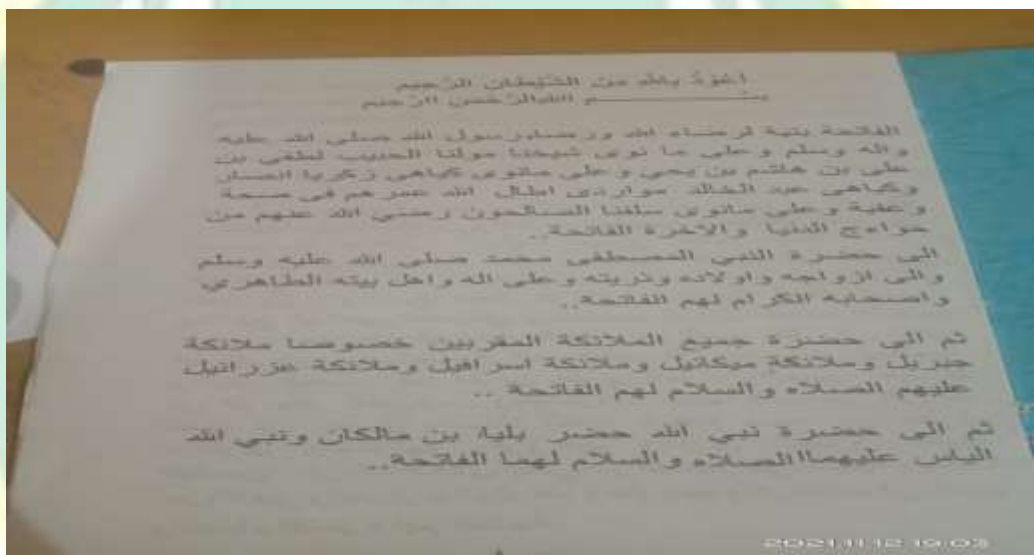 اعوذ بالله من الشيطان الرجيم
بســـــــــم اللهالرحمن الرحيم
الفاتحة بنية لرضاء الله ورضاءرسول الله صلى الله عليه
واله وسلم وعلى ما نوى شيخنا مولنا الحبيب لطفي بن
على بن هاشم بن يحي وعلى مانوى كياهى زكريا انصار
وكياهى عبد الخالد مواردى اطال الله عمرهم فى صحة
وعفية وعلى مانوى سلفنا الصالحون رضي الله عنهم من
حواءج الدنيا والاخرة الفاتحة..
الى حضرة النبي المصطفى محمد صلى الله عليه وسلم
والى ازواجه واولاده وذريته وعلى اله واهل بيته الطاهري
واصحابه الكرام لهم الفاتحة..
ثم الى حضرة جميع الملائكة المقربين خصوصا ملائكة
جبريل وملائكة ميكائيل وملائكة اسرافيل وملائكة عزرائيل
عليهم الصلاه والسلام لهم الفاتحة ..
ثم الى حضرة نبي الله حضر بليا بن مالكان ونبي الله
الياس عليهماالصلاه والسلام لهما الفاتحة..
2021.11.12 19:03